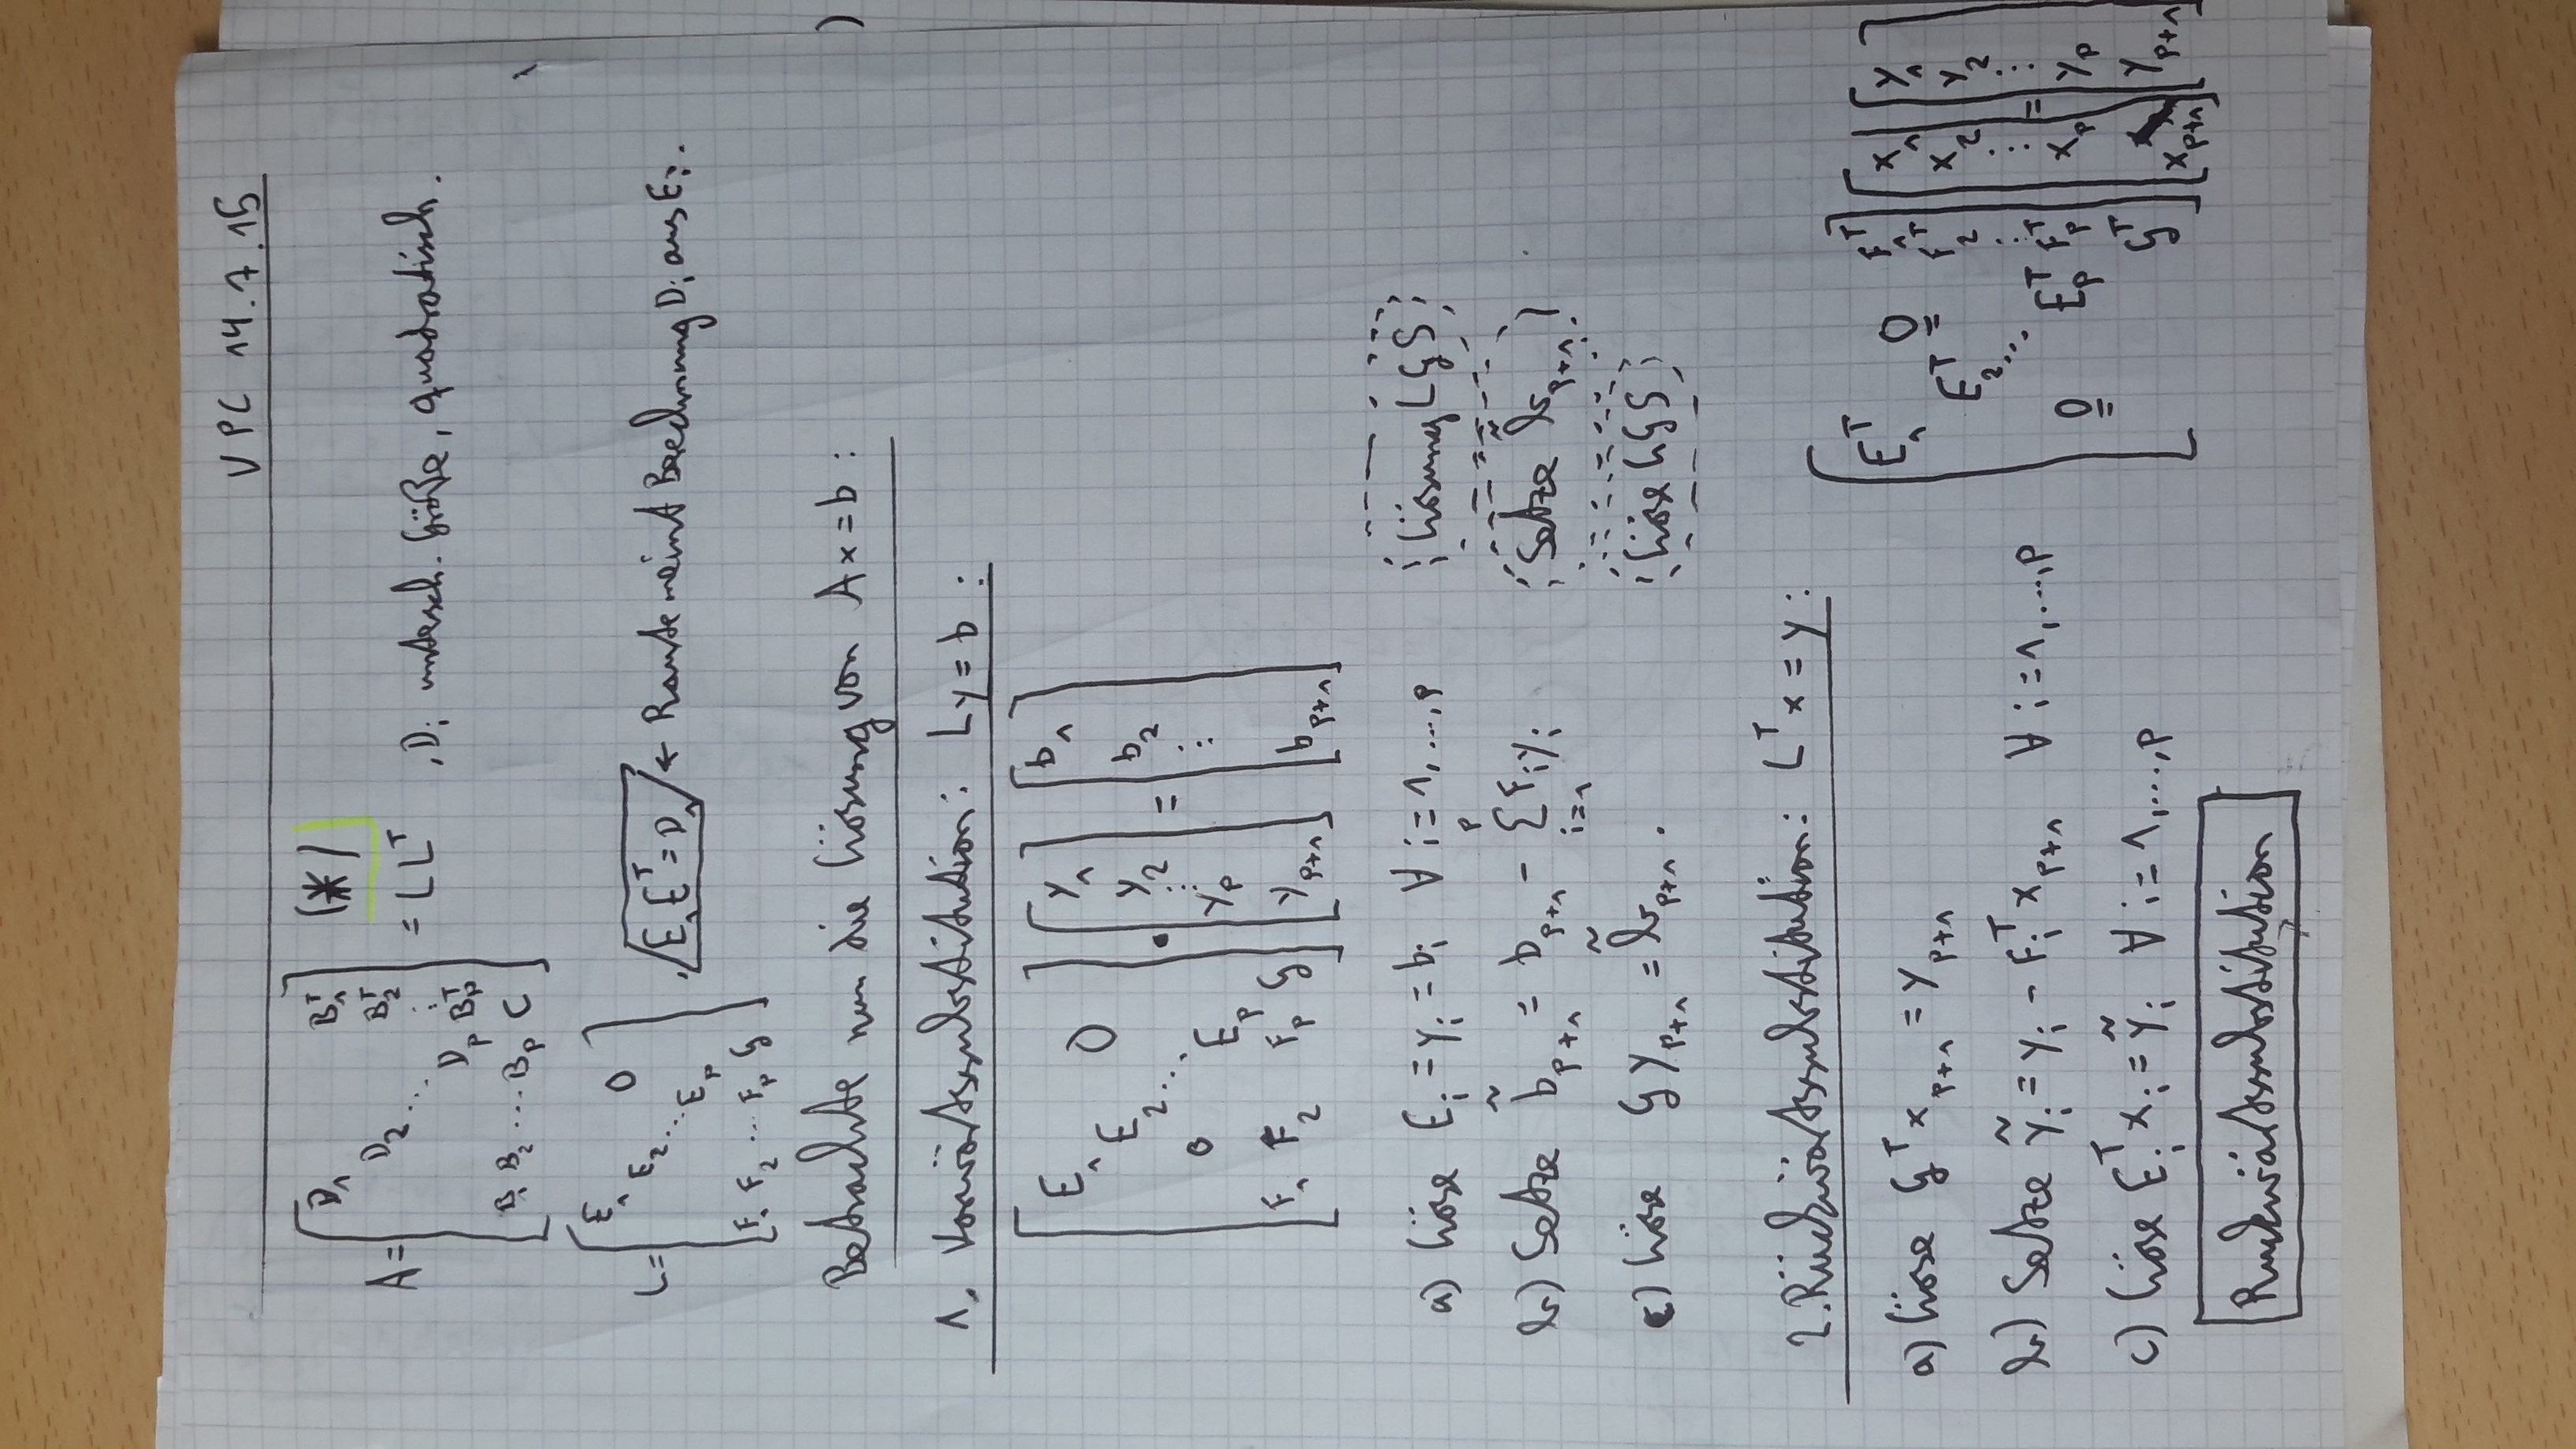 VPC 14.7.15
A = [ D₁ B₁ᵀ
D₂ B₂ᵀ
⋱ ⋮
D_p B_pᵀ
B₁ B₂ ... B_p C ] (*) = L Lᵀ , Dᵢ untersch. Größe, quadratisch.
L = [ E₁ 0
E₂ ⋱
E_p
F₁ F₂ ... F_p G ] , E₁Eᵀ = D₁ ← Raute meint Berechnung Dᵢ aus Eᵢ.
Betrachte nun die Lösung von Ax = b :
1. Vorwärtssubstitution: Ly = b :
[ E₁ 0
E₂ ⋱
0 E_p
F₁ F₂ F_p G ] · [ y₁ y₂ ⋮ y_p y_{p+1} ] = [ b₁ b₂ ⋮ b_{p+1} ]
a) Löse Eᵢ = yᵢ = bᵢ ∀ i = 1,...,p Lösung LGS
b) Setze b̃_{p+1} = b_{p+1} - Σ_{i=1}^{p} Fᵢyᵢ Setze b̃_{p+1}
c) Löse G y_{p+1} = b̃_{p+1} . Löse LGS
2. Rückwärtssubstitution: Lᵀx = y :
a) Löse Gᵀ x_{p+1} = y_{p+1}
b) Setze ỹᵢ = yᵢ - Fᵢᵀ x_{p+1} ∀ i = 1,...,p
c) Löse Eᵢᵀ xᵢ = ỹᵢ ∀ i = 1,...,p
[ E₁ᵀ 0 F₁ᵀ
E₂ᵀ ⋱ F₂ᵀ
⋮
0 E_pᵀ F_pᵀ
Gᵀ ] [ x₁ x₂ ⋮ x_p x_{p+1} ] = [ y₁ y₂ ⋮ y_p y_{p+1} ]
Ruckwärtssubstitution